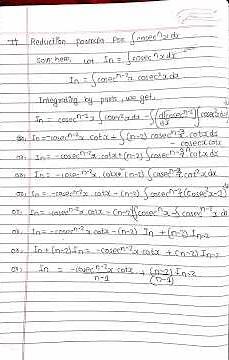 Reduction formula for ∫cosecⁿx dx
Soln: here, Let In = ∫cosecⁿx dx
In = ∫cosecⁿ⁻²x cosec²x dx
Integrating by parts, we get,
In = cosecⁿ⁻²x ∫cosec²x dx - ∫(d(cosecⁿ⁻²x)/dx ∫cosec²x dx
or, In = -cosecⁿ⁻²x cotx + ∫(n-2) cosecⁿ⁻³x . cotx dx
- cosecx cotx
or, In = -cosecⁿ⁻²x cotx + (n-2) ∫cosecⁿ⁻²x cotx dx
or, In = -cosecⁿ⁻²x . cotx - (n-2) ∫cosecⁿ⁻²x cot²x dx
or, In = -cosecⁿ⁻²x . cotx - (n-2) ∫cosecⁿ⁻²x (cosec²x - 1)
or, In = -cosecⁿ⁻²x cotx - (n-2) ∫cosecⁿx - ∫cosecⁿ⁻²x dx
or, In = -cosecⁿ⁻²x cotx - (n-2) In + (n-2) In-2
or, In + (n-2) In = -cosecⁿ⁻²x cotx + (n-2) In-2
or, In = -cosecⁿ⁻²x cotx / n-1 + (n-2)/(n-1) In-2